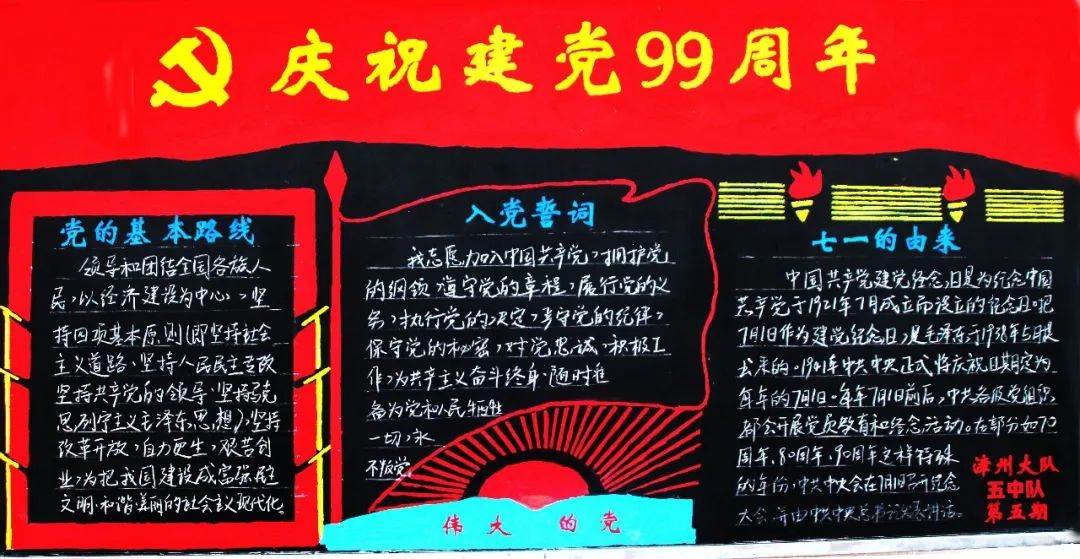 庆祝建党99周年
党的基本路线
领导和团结全国各族人
民，以经济建设为中心，坚
持四项基本原则(即坚持社会
主义道路、坚持人民民主专政
坚持共产党的领导、坚持马克
思列宁主义毛泽东思想)，坚持
改革开放，自力更生，艰苦创
业，为把我国建设成富强民主
文明和谐美丽的社会主义现代化
入党誓词
我志愿加入中国共产党，拥护党
的纲领，遵守党的章程，履行党的义
务，执行党的决定，严守党的纪律，
保守党的秘密，对党忠诚，积极工
作，为共产主义奋斗终身，随时准
备为党和人民牺牲
一切，永
不叛党。
伟大的党
七一的由来
中国共产党建党纪念日是为纪念中国
共产党于1921年7月成立而设立的纪念日。把
7月1日作为建党纪念日，是毛泽东于1938年5月提
出来的。1941年中共中央正式将庆祝日期定为
每年的7月1日。每年7月1日前后，中共各级党组织
都会开展党员教育和纪念活动。在部分如70
周年、80周年、90周年这样特殊
的年份，中共中央会在7月1日召开纪念
大会，并由中共中央总书记发表讲话。
漳州大队
五中队
第五期